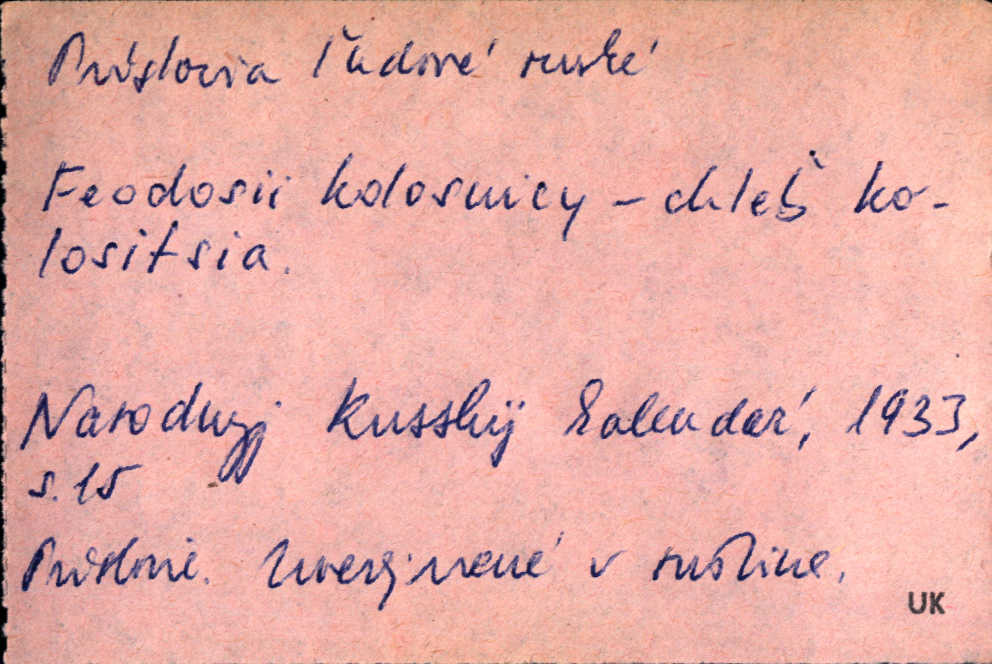 Príslovia ľudové ruské
Feodosii kolosnicy – chleb ko-
lositsia.
Narodnyj Russkij kalendar', 1933,
s. 15
Príslovie. Uverejnené v ruštine.
UK